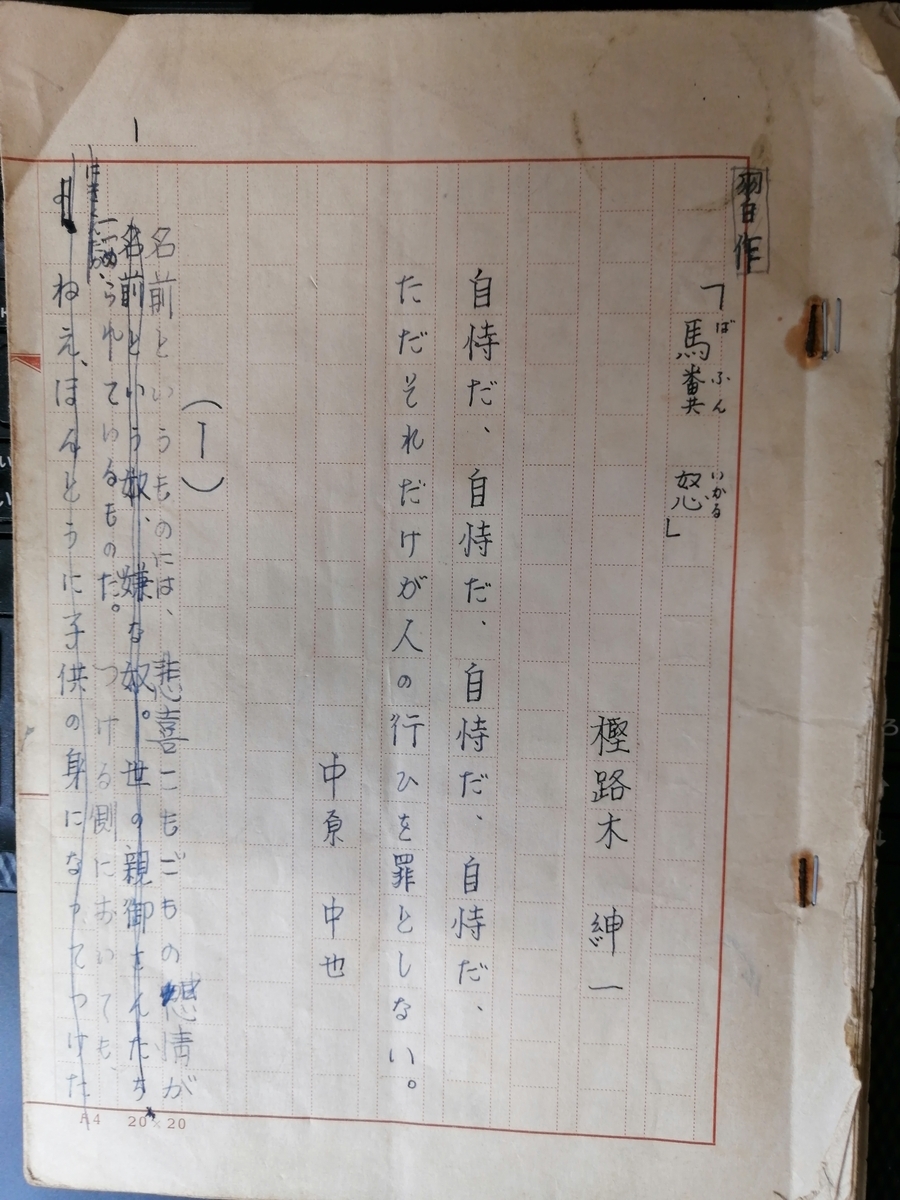 習作
「馬糞 怒」
ばふん いかる
樫路木 紳一
自恃だ、自恃だ、自恃だ、自恃だ、
ただそれだけが人の行ひを罪としない。
中原 中也
(I)
名前というものには、悲喜こもごもの 情が
名前という奴、嫌な奴。世の親御さんたち
こめられているものだ。つける側においても、
ねえ、ほんとうに子供の身になってつけた
1
A4 20×20